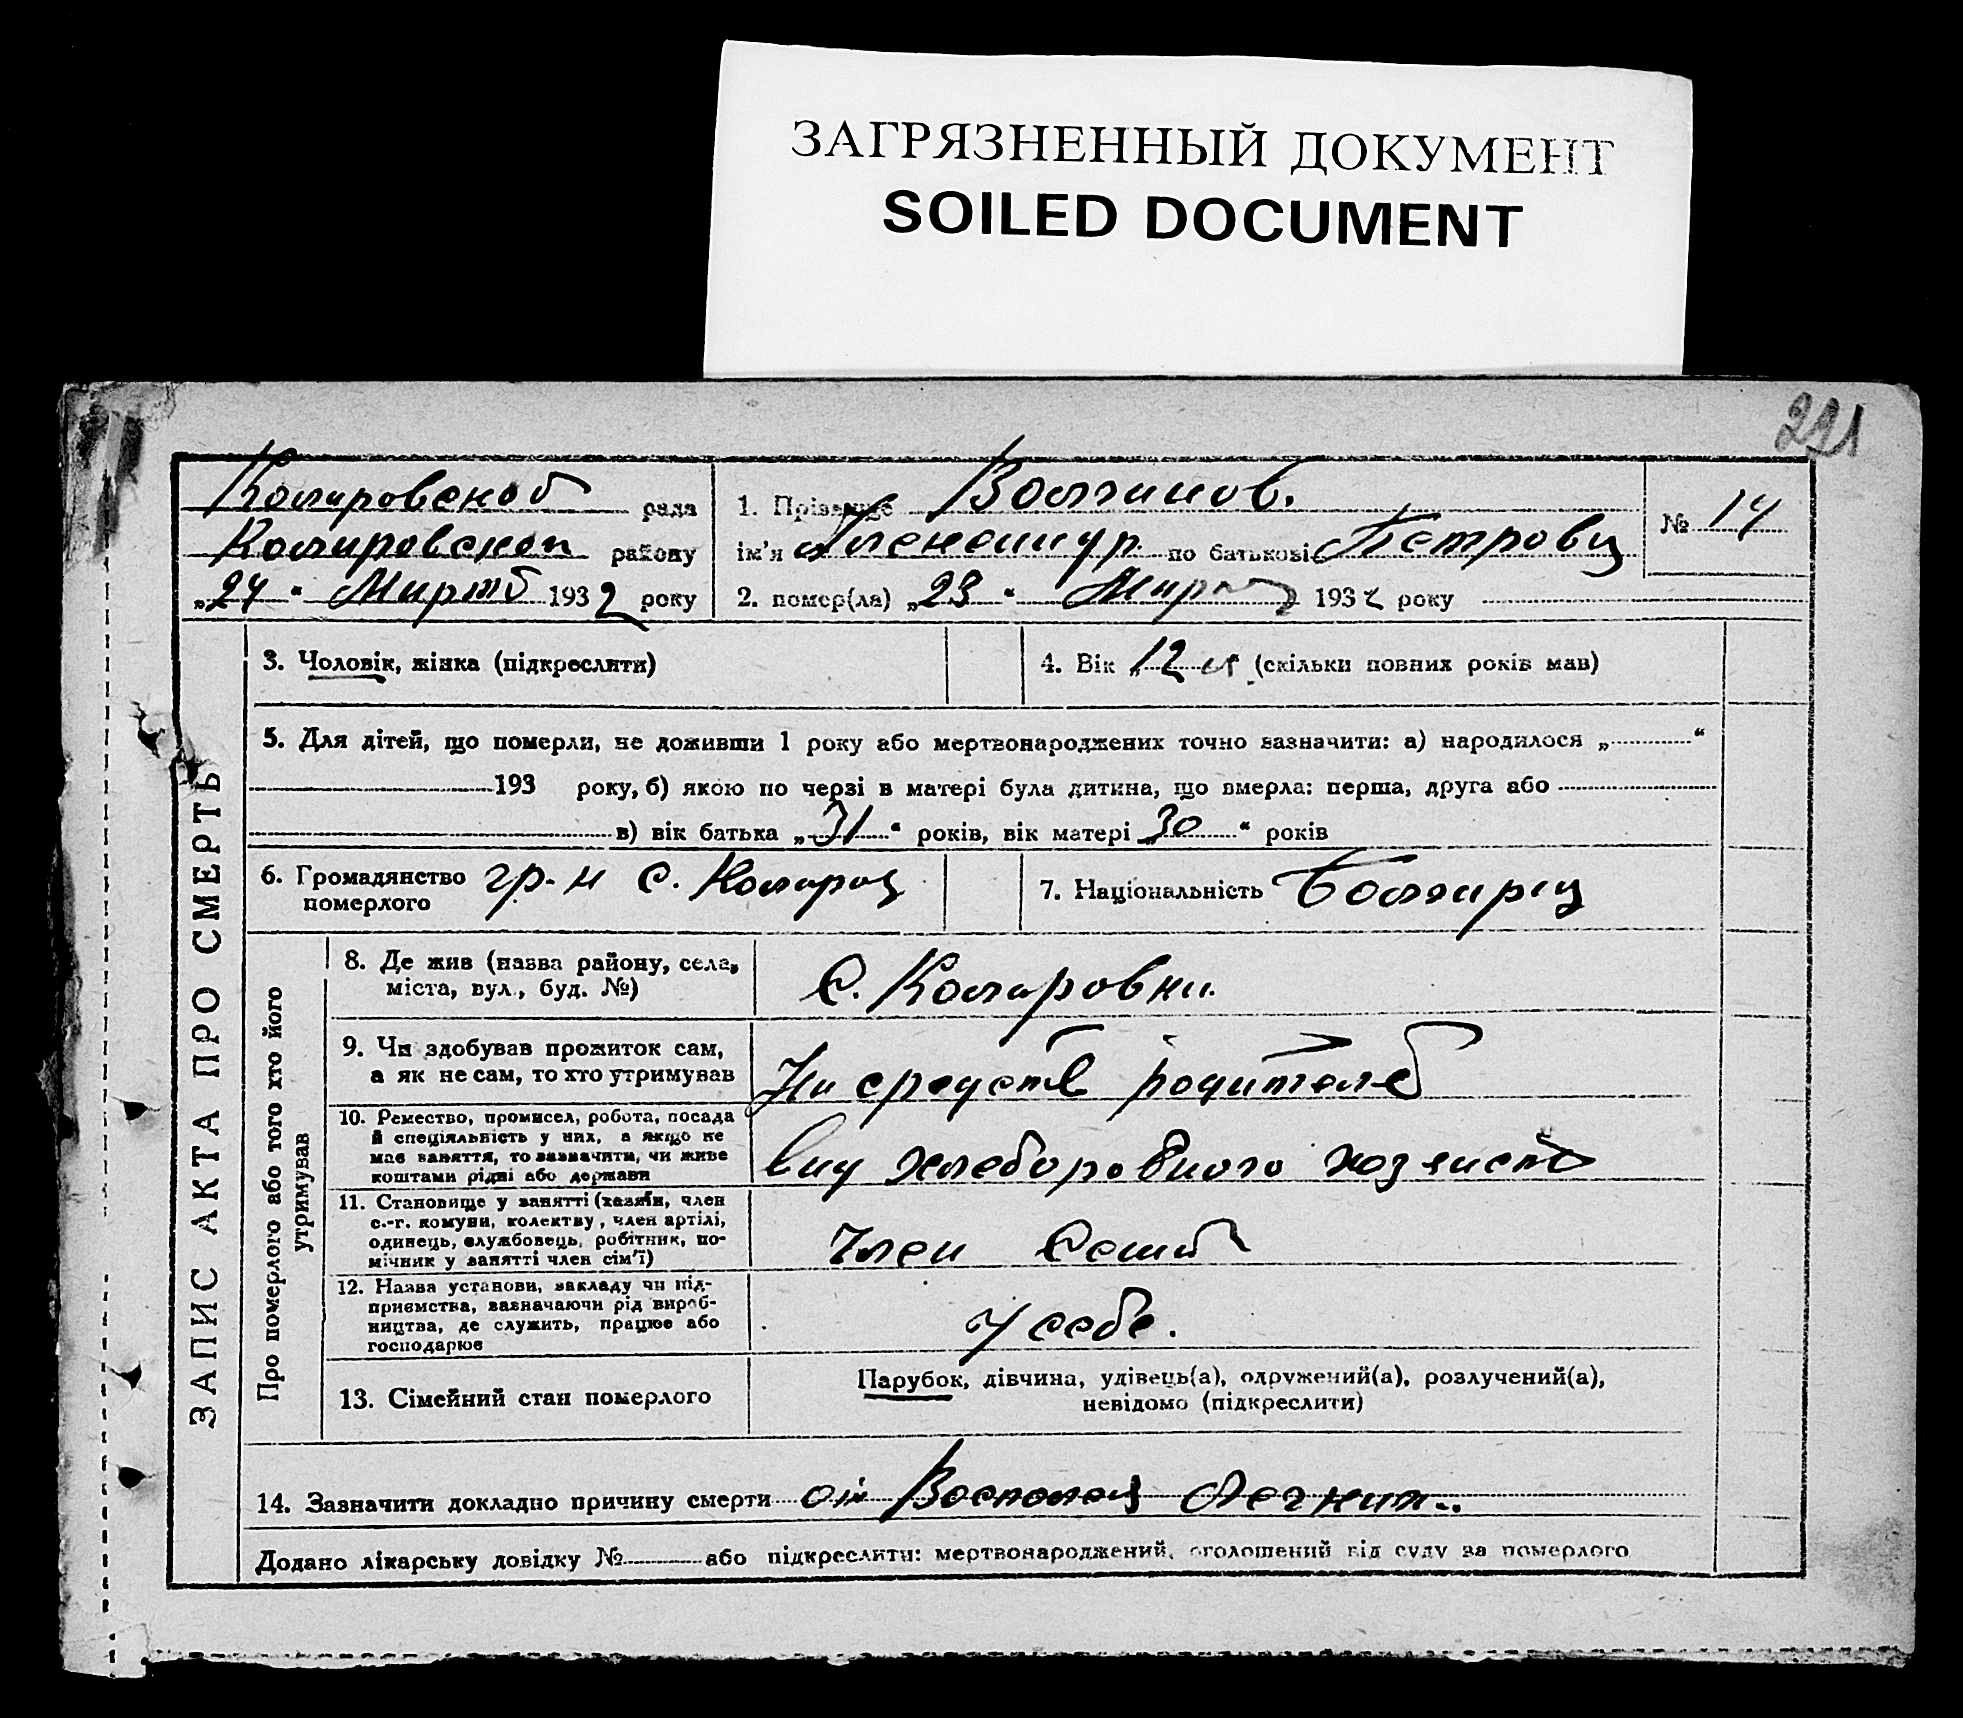 ЗАГРЯЗНЕННЫЙ ДОКУМЕНТ
SOILED DOCUMENT
291
Коларовской рада
Коларовском району
„24“ Марта 1932 року
1. Прізвище Волканов.
ім'я Александр по батькові Петрович
2. помер(ла) „23“ Марта 1932 року
№ 14
ЗАПИС АКТА ПРО СМЕРТЬ
3. Чоловік, жінка (підкреслити)
4. Вік „12 (скільки повних років мав)
5. Для дітей, що померли, не доживши 1 року або мертвонароджених точно зазначити: а) народилося „ “
193 року, б) якою по черзі в матері була дитина, що вмерла: перша, друга або
в) вік батька „31“ років, вік матері „30“ років
6. Громадянство гр-н с.
померлого
7. Національність Болгарин
Про померлого або того хто його
утримував
8. Де жив (назва району, села,
міста, вул., буд. №)
С. Коларовка.
9. Чи здобував прожиток сам,
а як не сам, то хто утримував
На средств родителей
10. Ремество, промисел, робота, посада
й спеціяльність у них, а якщо не
має заняття, то зазначити, чи живе
коштами рідні або держави
хлеборобного
11. Становище у занятті (хазяїн, член
с.-г. комуни, колектву, член артілі,
одинець, службовець, робітник, по-
мічник у занятті член сім'ї)
Член Семьи
12. Назва установи, закладу чи під-
приємства, зазначаючи рід вироб-
ництва, де служить, працює або
господарює
У себе.
13. Сімейний стан померлого
Парубок, дівчина, удівець(а), одружений(а), розлучений(а),
невідомо (підкреслити)
14. Зазначити докладно причину смерти от Легких.
Додано лікарську довідку № або підкреслити: мертвонароджений, оголошений від суду за померлого